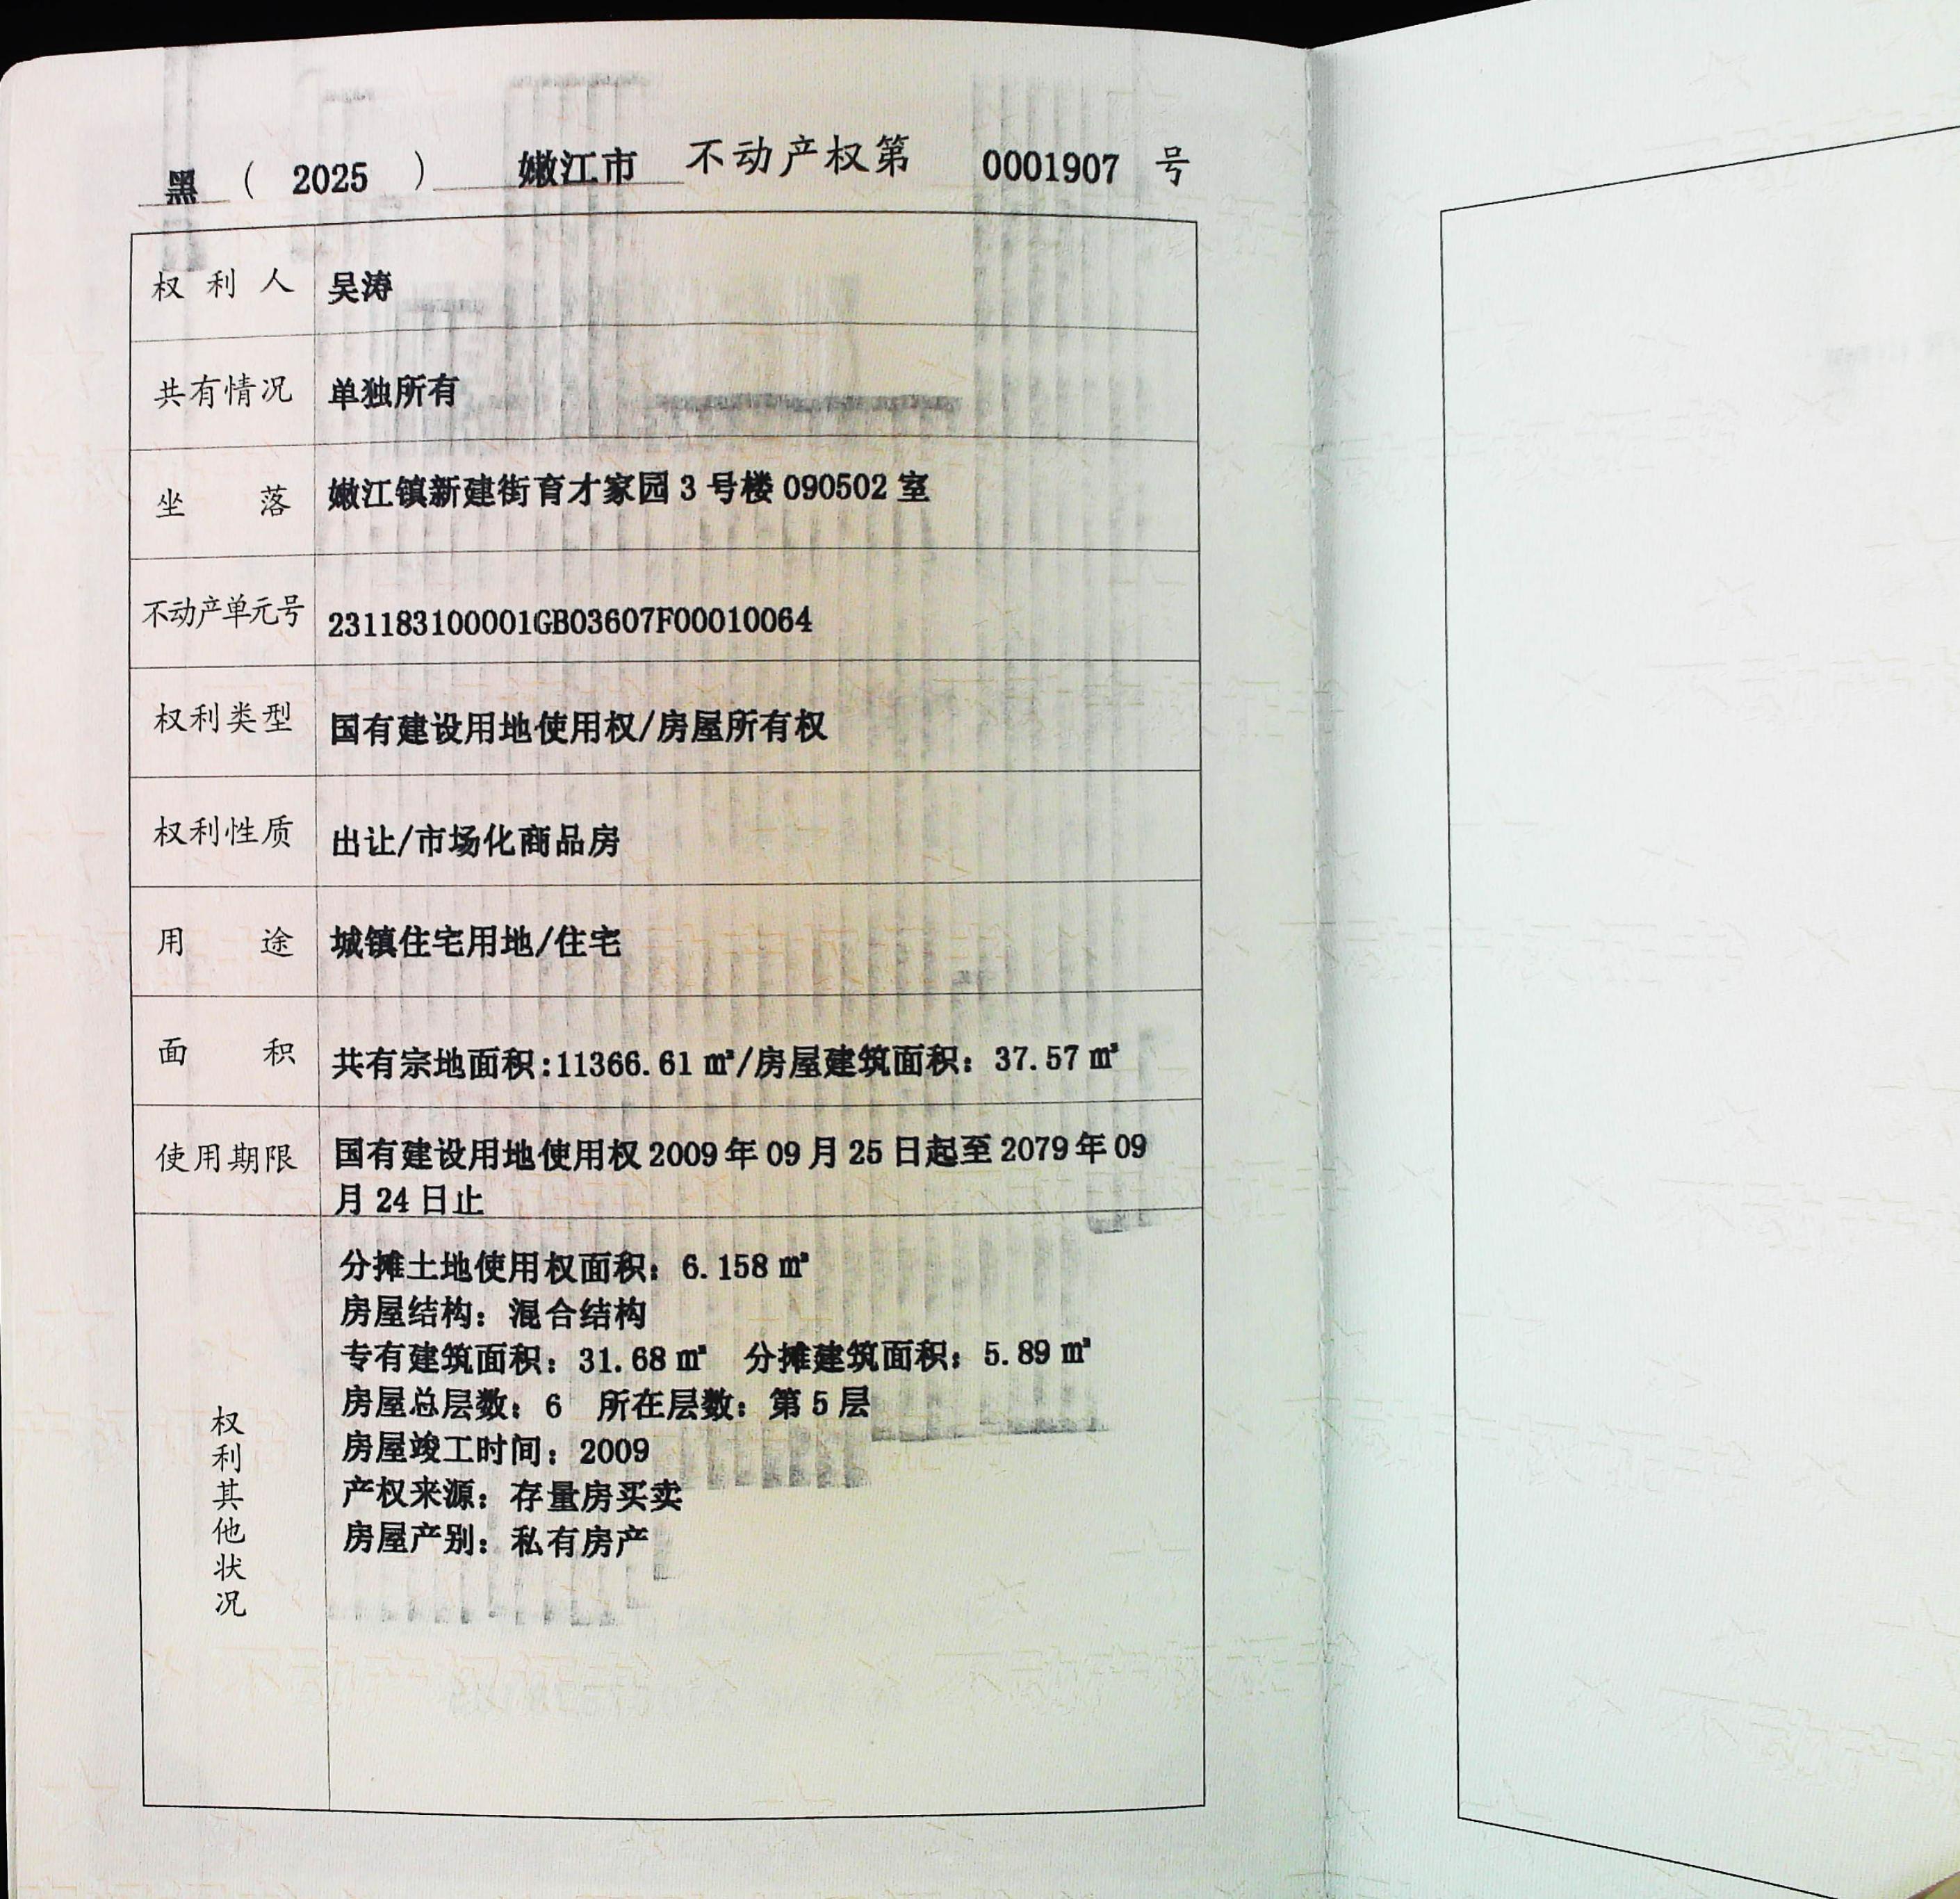 黑 ( 2025 ) 嫩江市 不动产权第 0001907 号
权利人 吴涛
共有情况 单独所有
坐落 嫩江镇新建街育才家园 3 号楼 090502 室
不动产单元号 231183100001GB03607F00010064
权利类型 国有建设用地使用权/房屋所有权
权利性质 出让/市场化商品房
用途 城镇住宅用地/住宅
面积 共有宗地面积:11366.61 ㎡/房屋建筑面积：37.57 ㎡
使用期限 国有建设用地使用权 2009 年 09 月 25 日起至 2079 年 09
月 24 日止
权利其他状况
分摊土地使用权面积：6.158 ㎡
房屋结构：混合结构
专有建筑面积：31.68 ㎡ 分摊建筑面积：5.89 ㎡
房屋总层数：6 所在层数：第 5 层
房屋竣工时间：2009
产权来源：存量房买卖
房屋产别：私有房产